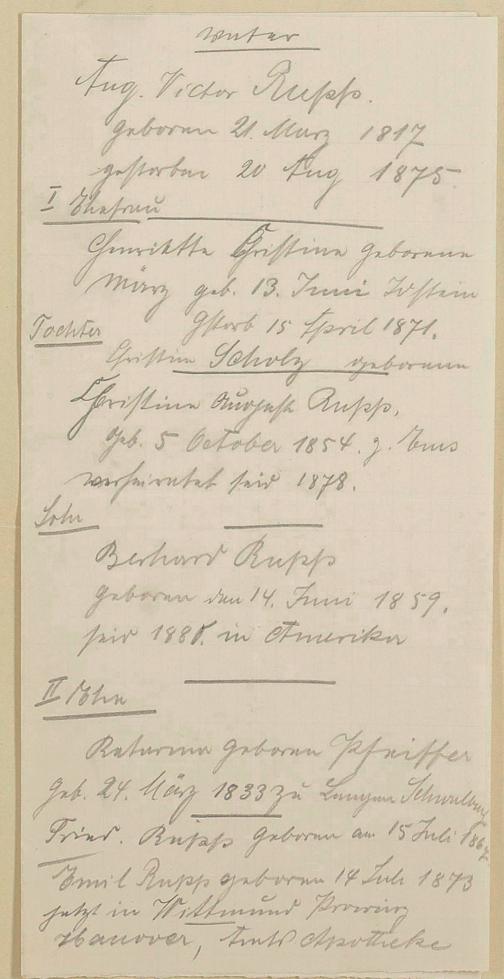 Vater
Aug. Victor Rupp.
geboren 21. März 1817
gestorben 20 Aug 1875.
I Ehefrau
Henriette Christine geborene
März geb. 13. Juni Idstein
Gstorb 15 April 1871.
Tochter
Christine Scholz geborene
Christine August Rupp.
geb. 5 October 1854. z. Ems
verheiratet seid 1878.
Sohn
Berhard Rupp
geboren den 14. Juni 1859.
seid 1881. in Amerika
II Ehe
Katarina geboren Pfeiffer
geb. 24. März 1833 zu Langen Schwalbach
Fried. Rupp geboren am 15 Juli
Emil Rupp geboren 14 Juli 1873
jetzt in Wittmund Provinz
Hanover, Amts Apotheke